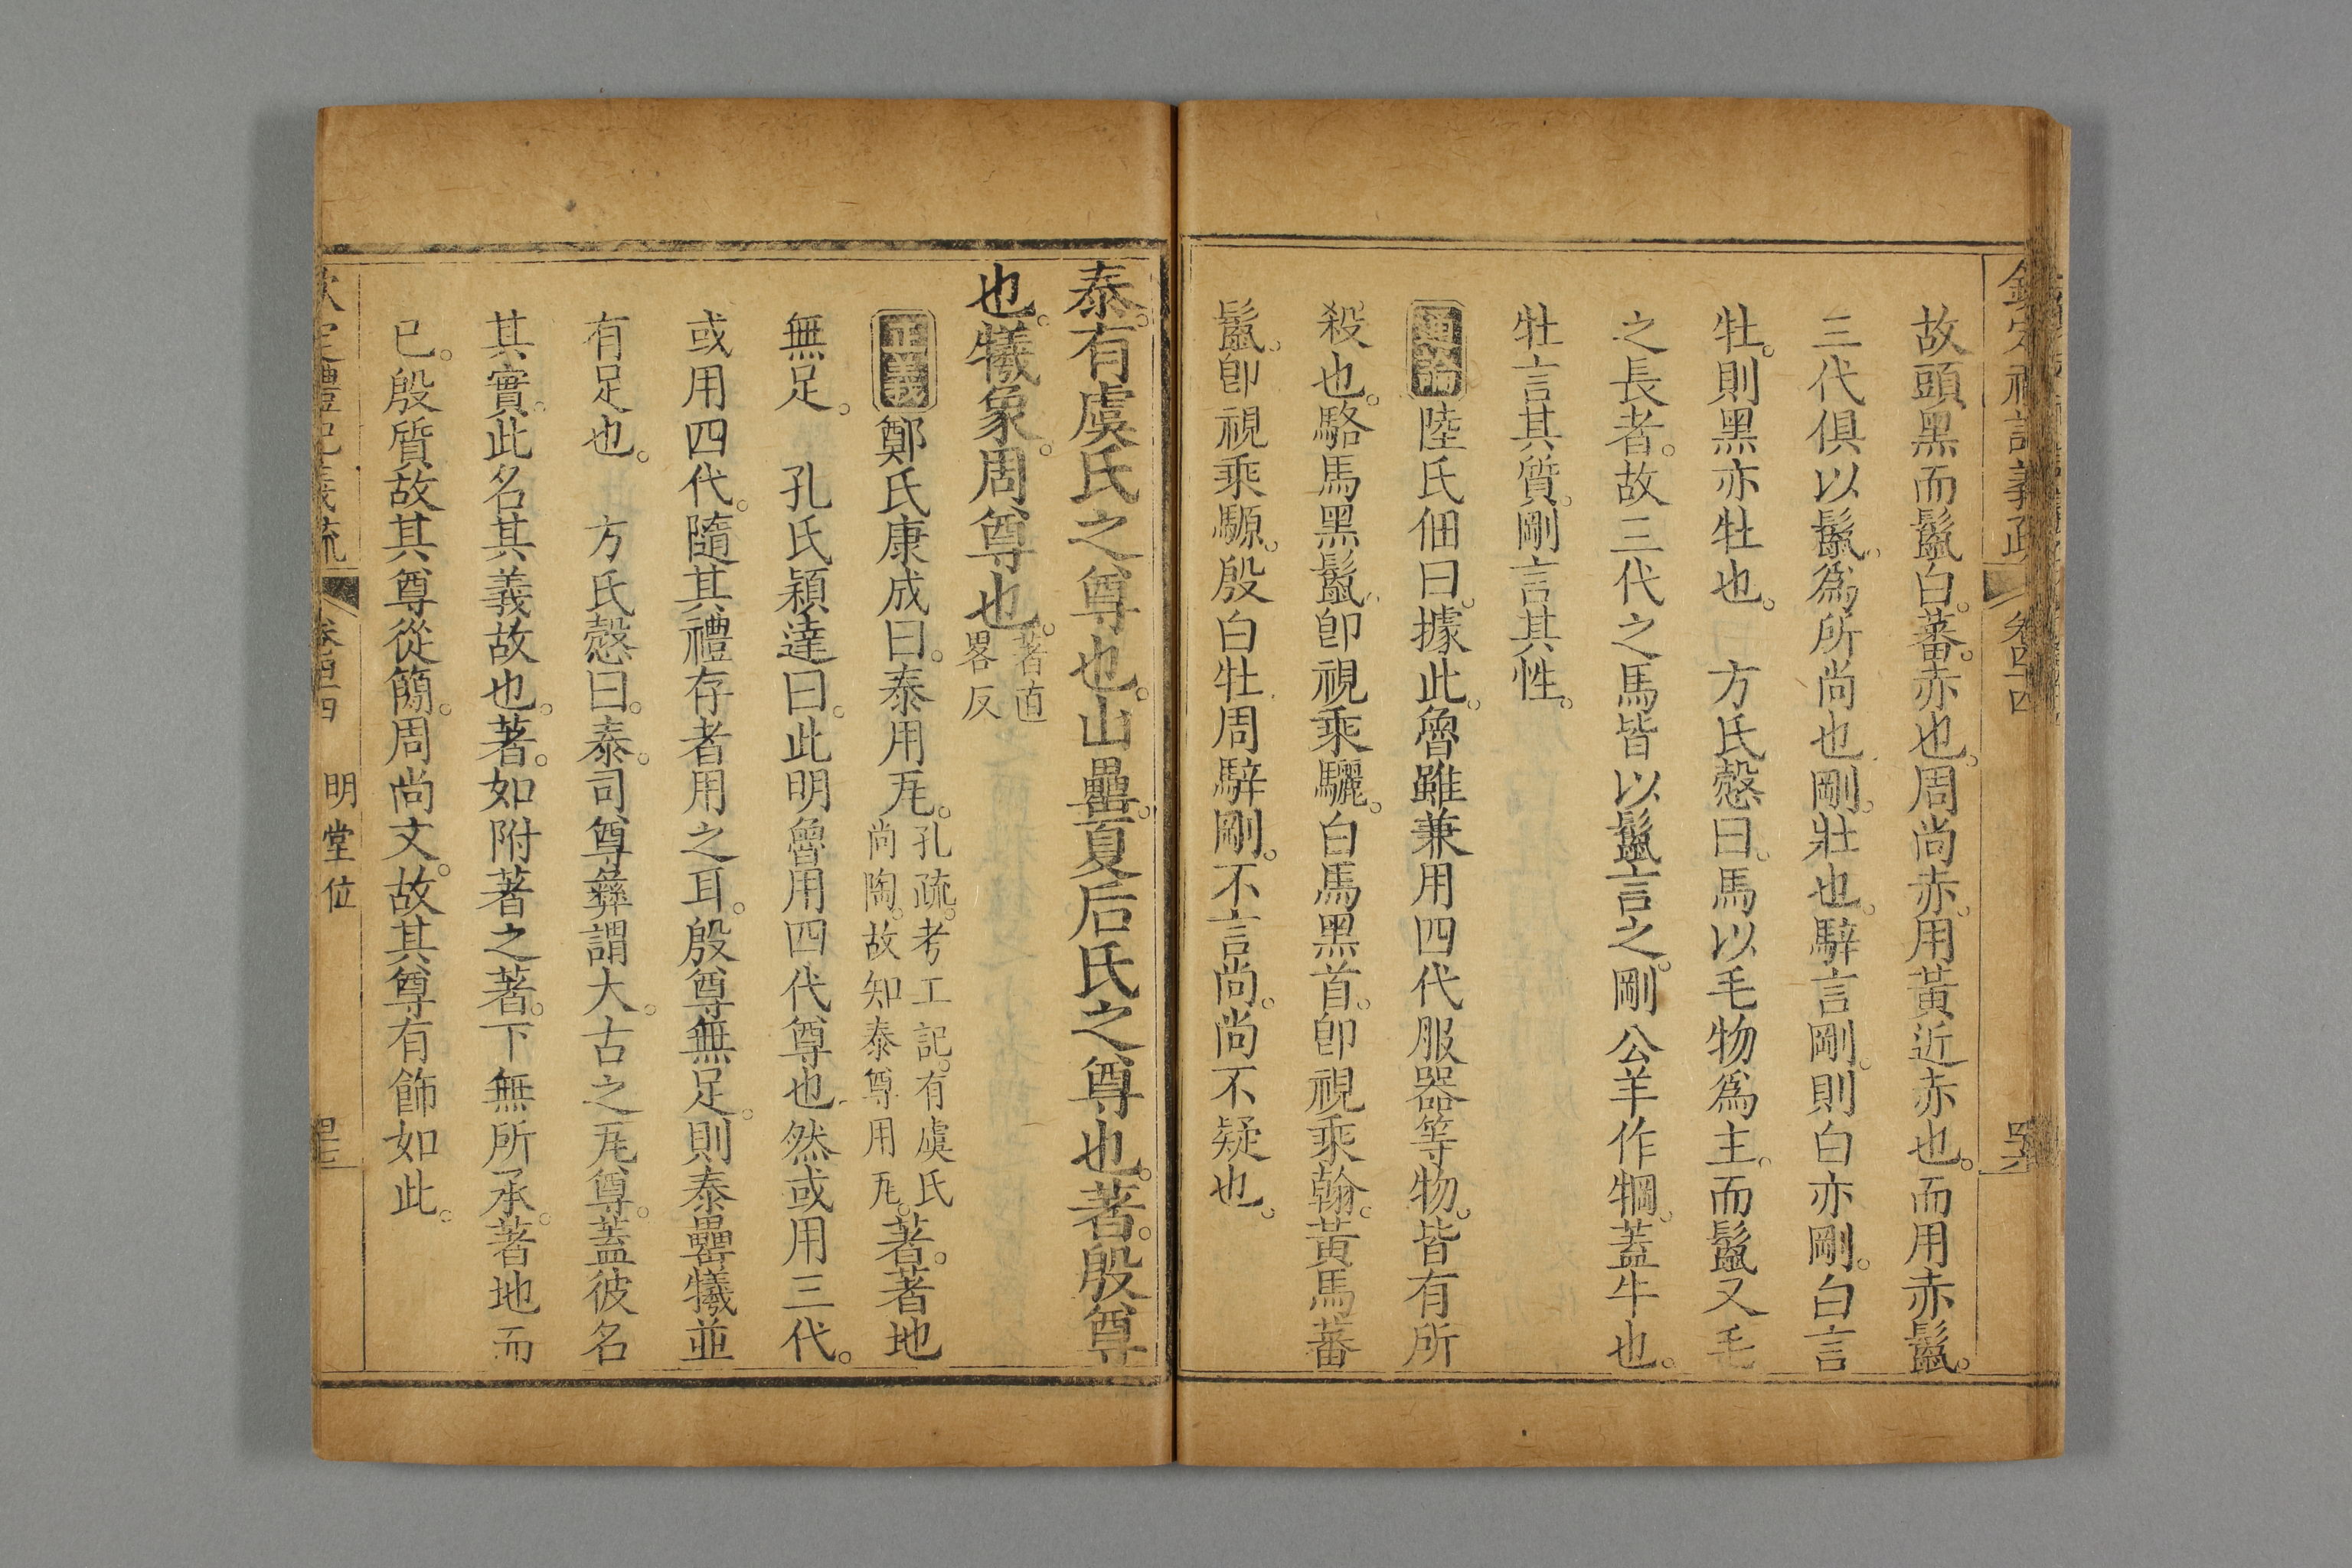 故頭黑而鬛白。蕃。赤也。周尚赤。用黃近赤也。而用赤鬛。
三代俱以鬛。爲所尚也。剛。壯也。騂言剛。則白亦剛。白言
牡。則黑亦牡也。 方氏慤曰。馬以毛物爲主。而鬛又毛
之長者。故三代之馬皆以鬛言之。剛 公羊作犅。蓋牛也。
牡言其質。剛言其性。
通論 陸氏佃曰。據此。魯雖兼用四代服器等物。皆有所
殺也。駱馬黑鬛。卽視乘驪。白馬黑首。卽視乘翰。黃馬蕃
鬛。卽視乘騵。殷白牡。周騂剛。不言尚。尚不疑也。
泰。有虞氏之尊也。山罍。夏后氏之尊也。著。殷尊
也。犧象。周尊也。著直畧反
正義 鄭氏康成曰。泰用瓦。孔疏。考工記。有虞氏尚陶。故知泰尊用瓦。著。著地
無足。 孔氏穎達曰。此明魯用四代尊也。然或用三代。
或用四代。隨其禮存者用之耳。殷尊無足。則泰罍犧並
有足也。 方氏慤曰。泰。司尊彝謂大。古之瓦尊。蓋彼名
其實。此名其義故也。著。如附著之著。下無所承。著地而
已。殷質故其尊從簡。周尚文。故其尊有飾如此。
欽定禮記義疏 卷四十四 明堂位